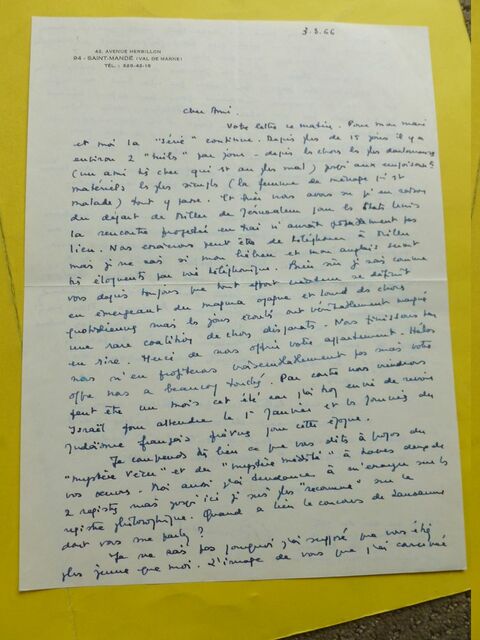 3.3.66
42, AVENUE HERBILLON
94 - SAINT-MANDÉ (VAL DE MARNE)
TÉL. : 328-42-18
Cher Ami.
Votre lettre ce matin. Pour mon mari
et moi la "série" continue. Depuis plus de 15 jours il y a
environ 2 "tuiles" par jour - depuis les choses les plus douloureuses
(un ami très cher qui est au plus mal) jusqu'aux
matériels les plus simples (la femme de ménage
malade) tout y passe. Et puis nous avons su qu'en raison
du départ de du Jérusalem pour les États Unis
la rencontre projetée en mai n'aurait pas
lieu. Nous essaierons peut être de téléphoner à
mais je ne sais si mon hébreu et mon anglais seront
très éloquents par voie téléphonique. Bien sûr je sais comme
vous depuis toujours que tout effort se définit
en émergeant du magma opaque et lourd des choses
quotidiennes mais les jours écoulés ont véritablement
une rare coalition de choses disparates. Nous finissons par
en rire. Merci de nous offrir votre appartement. Hélas
nous n'en profiterons vraisemblablement pas mais votre
offre nous a beaucoup touchés. Par contre nous viendrons
peut être un mois cet été car j'ai trop envie de revoir
Israël pour attendre le 1er Janvier et les journées du
Judaïsme français prévues pour cette époque.
Je comprends très bien ce que vous dites à propos du
"mystère vécu" et du "mystère médité" à travers
vos œuvres. Moi aussi j'ai tendance à m' sur les
2 registres mais jusqu'ici je suis plus "reconnue" sur le
registre philosophique. Quand a lieu le concours de Lausanne
dont vous me parlez ?
Je ne sais pas pourquoi j'ai supposé que vous étiez
plus jeune que moi. L'image de vous que j'ai